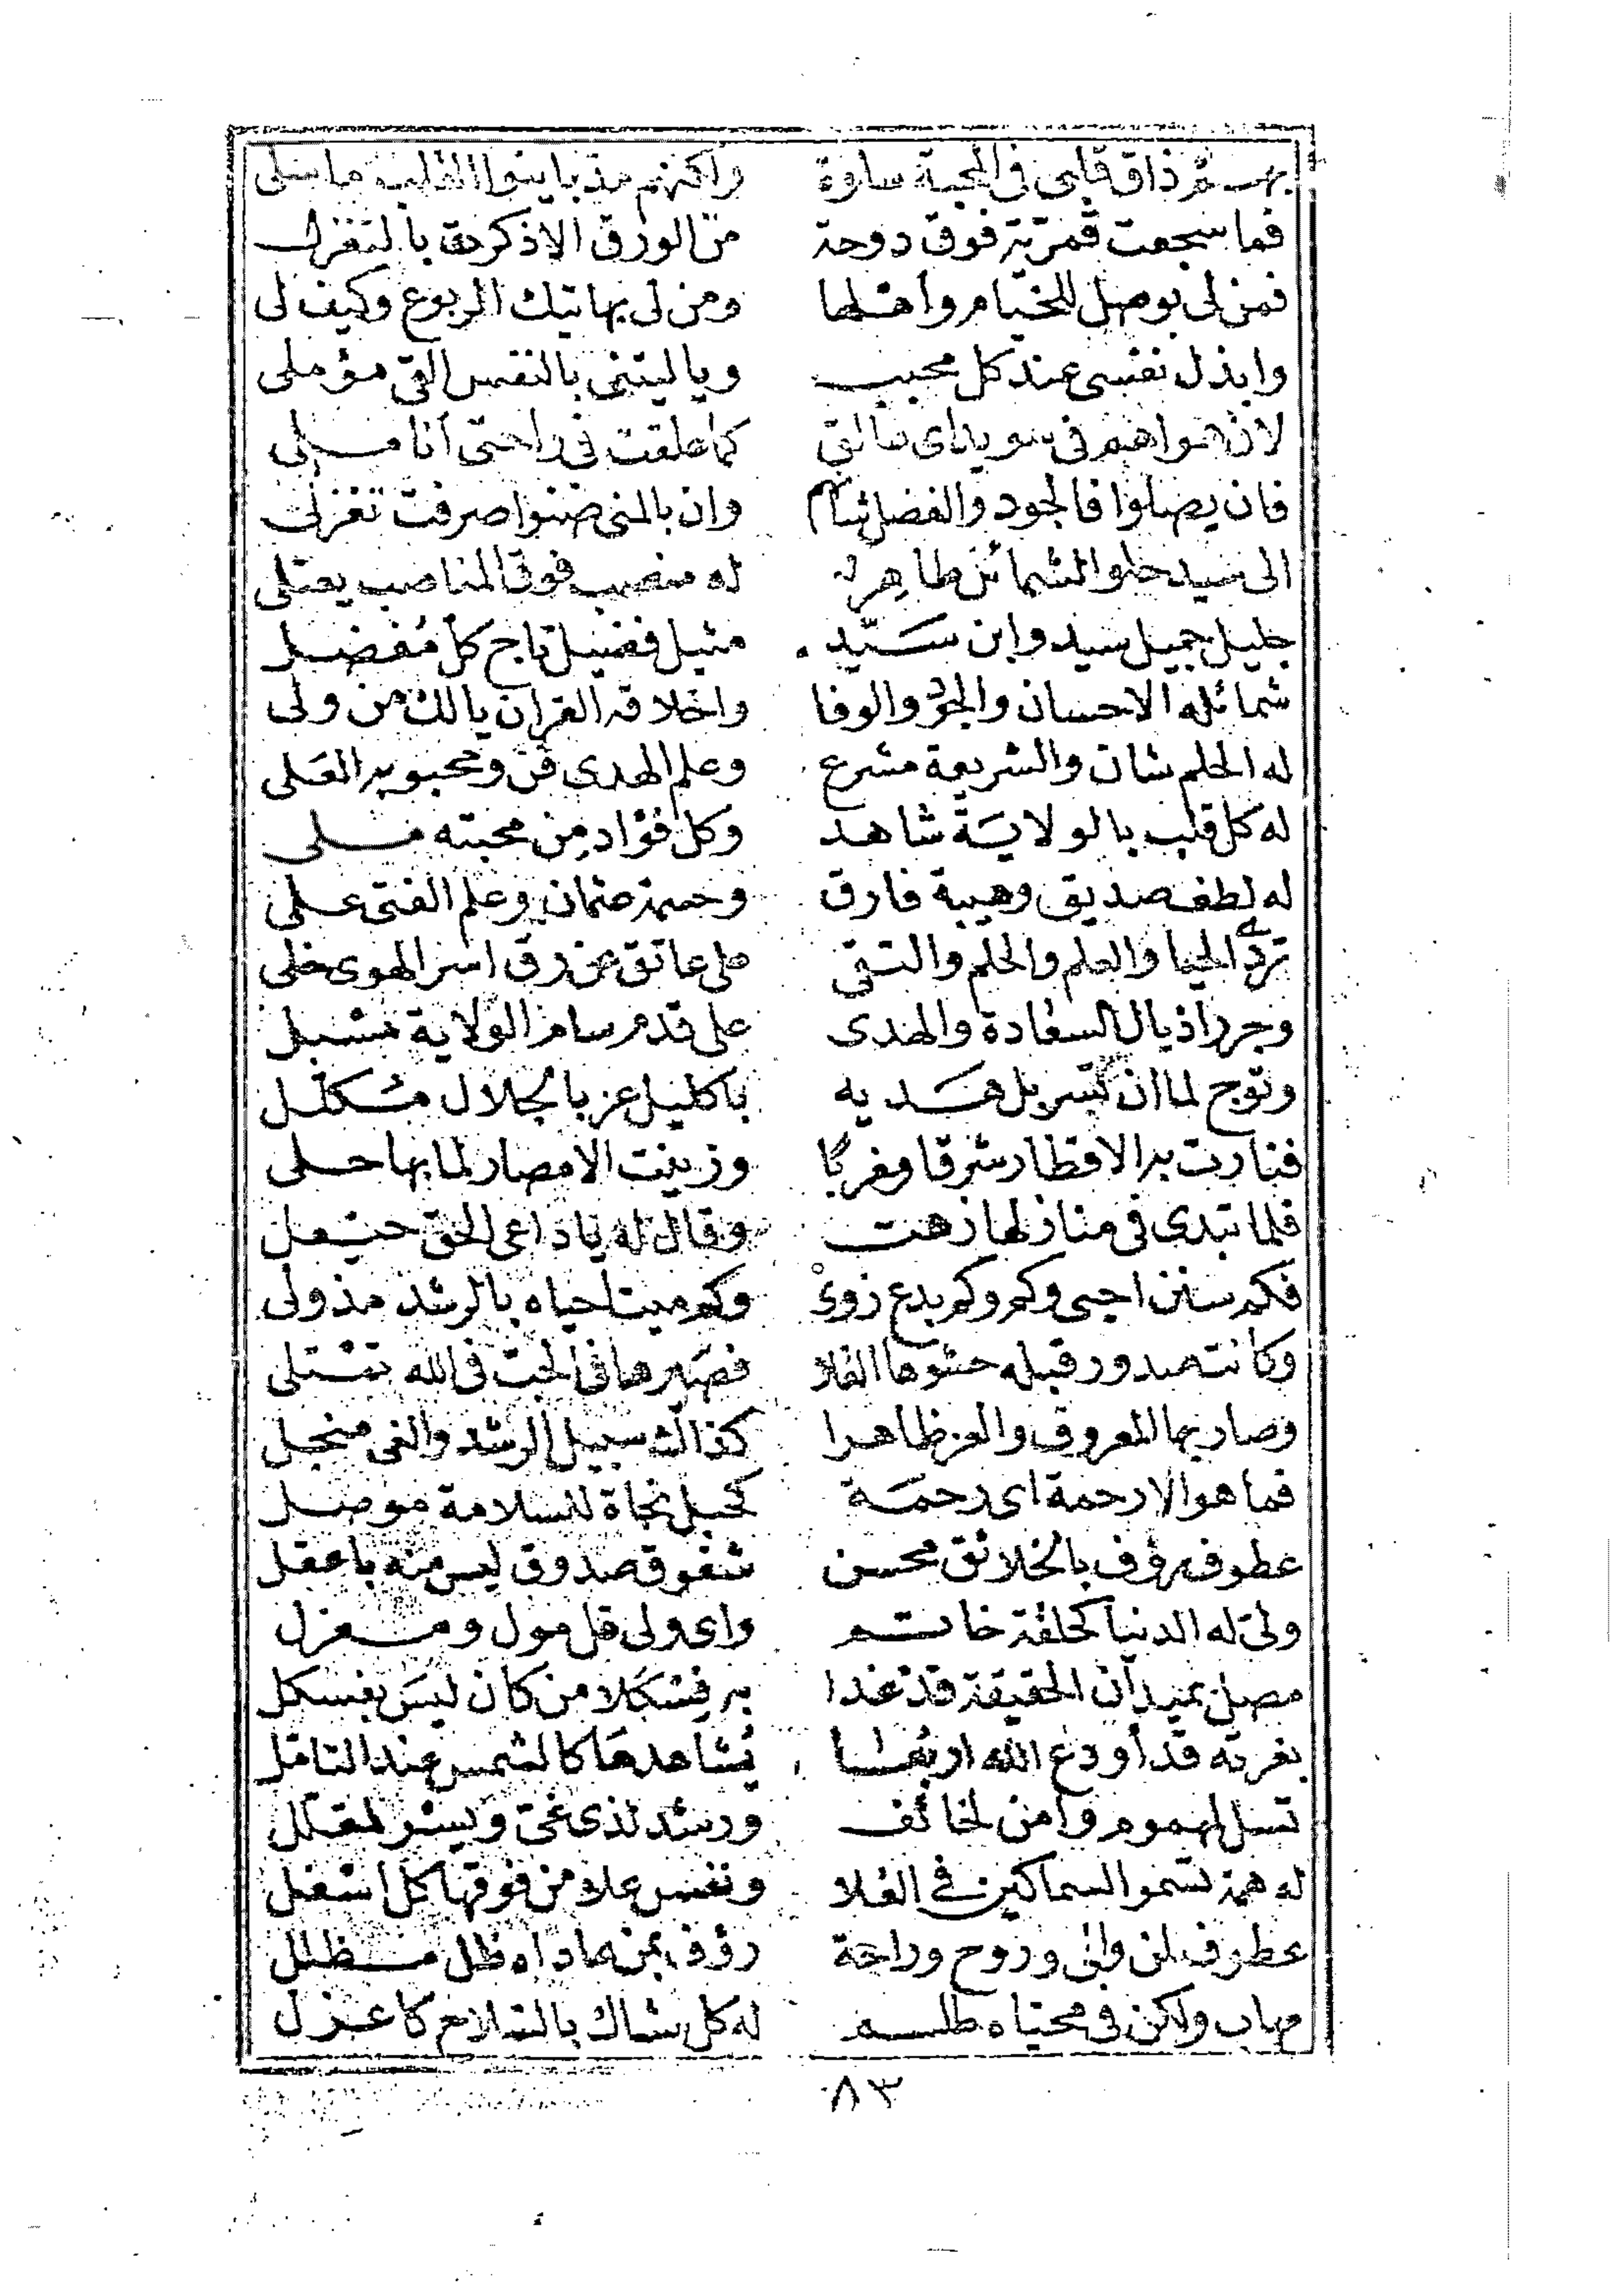 بهم ثم ذاق قلبى فى المحبة سلوة ولكنهم مذ باينوا القلب ما سلى
فما سجعت قمرية فوق دوحة من الورق الا ذكرتنى بالتغزل
فمن لى بوصل للخيام واهلها ومن لى بهاتيك الربوع وكيف لى
وابذل نفسى عند كل محبب ويا ليتنى بالنفس التى مؤملى
لان هواهم فى سويداى كما علقت فى راحتى أنا مـلى
فان يصلوا فالجود والفضل شأنهم وان بالمنى ضنوا صرفت تغزلى
الى سيد حلو الشمائل طاهر له منصب فوق المناصب يعتلى
جليل جميل سيد وابن سَيّد مثيل فضيل تاج كل مُفضـل
شمائله الاحسان والجود والوفا واخلاقه القران يا لك من ولى
له الحلم شان والشريعة مشرع وعلم الهدى فن ومحبوبه العَلى
له كل قلب بالولاية شاهد وكل فؤاد من محبته مـلى
له لطف صديق وهيبة فارق وحمة عثمان وعلم الفتى عـلى
تردى الحيا والعلم والحلم والتقى على عاتق عن رق اسر الهوى خلى
وجرر اذيال السعادة والهدى على قدم سام الولاية مسبل
وتوج لما ان تسربل هَـديه باكليل عز بالجلال مـكلل
فنارت به الاقطار شرقا ومغربًا وزينت الامصار لما بها حـلى
فلما تبدى فى منازلها زهت وقال له يا داعى الحق حيـعل
فكم سنن احيى وكم وكم بدع زوىْ وكم ميت احياه بالرشد مذ ولى
وكانت صدور قبله حشوها القلا فصَيرها فى الحب فى الله تمتلى
وصار بها المعروف والعز ظاهرا كذاك سبيل الرشد والغى منجل
فما هو الا رحمة اى رحمَة كحبل نجاة للسلامة موصـل
عطوف رؤف بالخلائق محسن شفوق صدوق ليس منه باعقل
ولىّ له الدنيا كحلقة خاتـم واى ولى قل مول ومـعزل
مصل بميدان الحقيقة قد غدا به فِسْكَلا من كان ليسَ بفسكل
بغرته قد أودع الله اربُعـا يُشاهدهَا كالشمس عند التامل
تسل لهموم وأمن لخائف ورشد لذى غى ويسر لمقلل
له همة تسمو السماكين فى العلا ونفس علا من فوقها كل اسفل
عطوف لمن والى وروح وراحة رؤف بمن عاداه ظل مـظلل
مهاب ولكن فى محياه طلسـم له كل شاك بالسلاح كاعـزل
٨٣